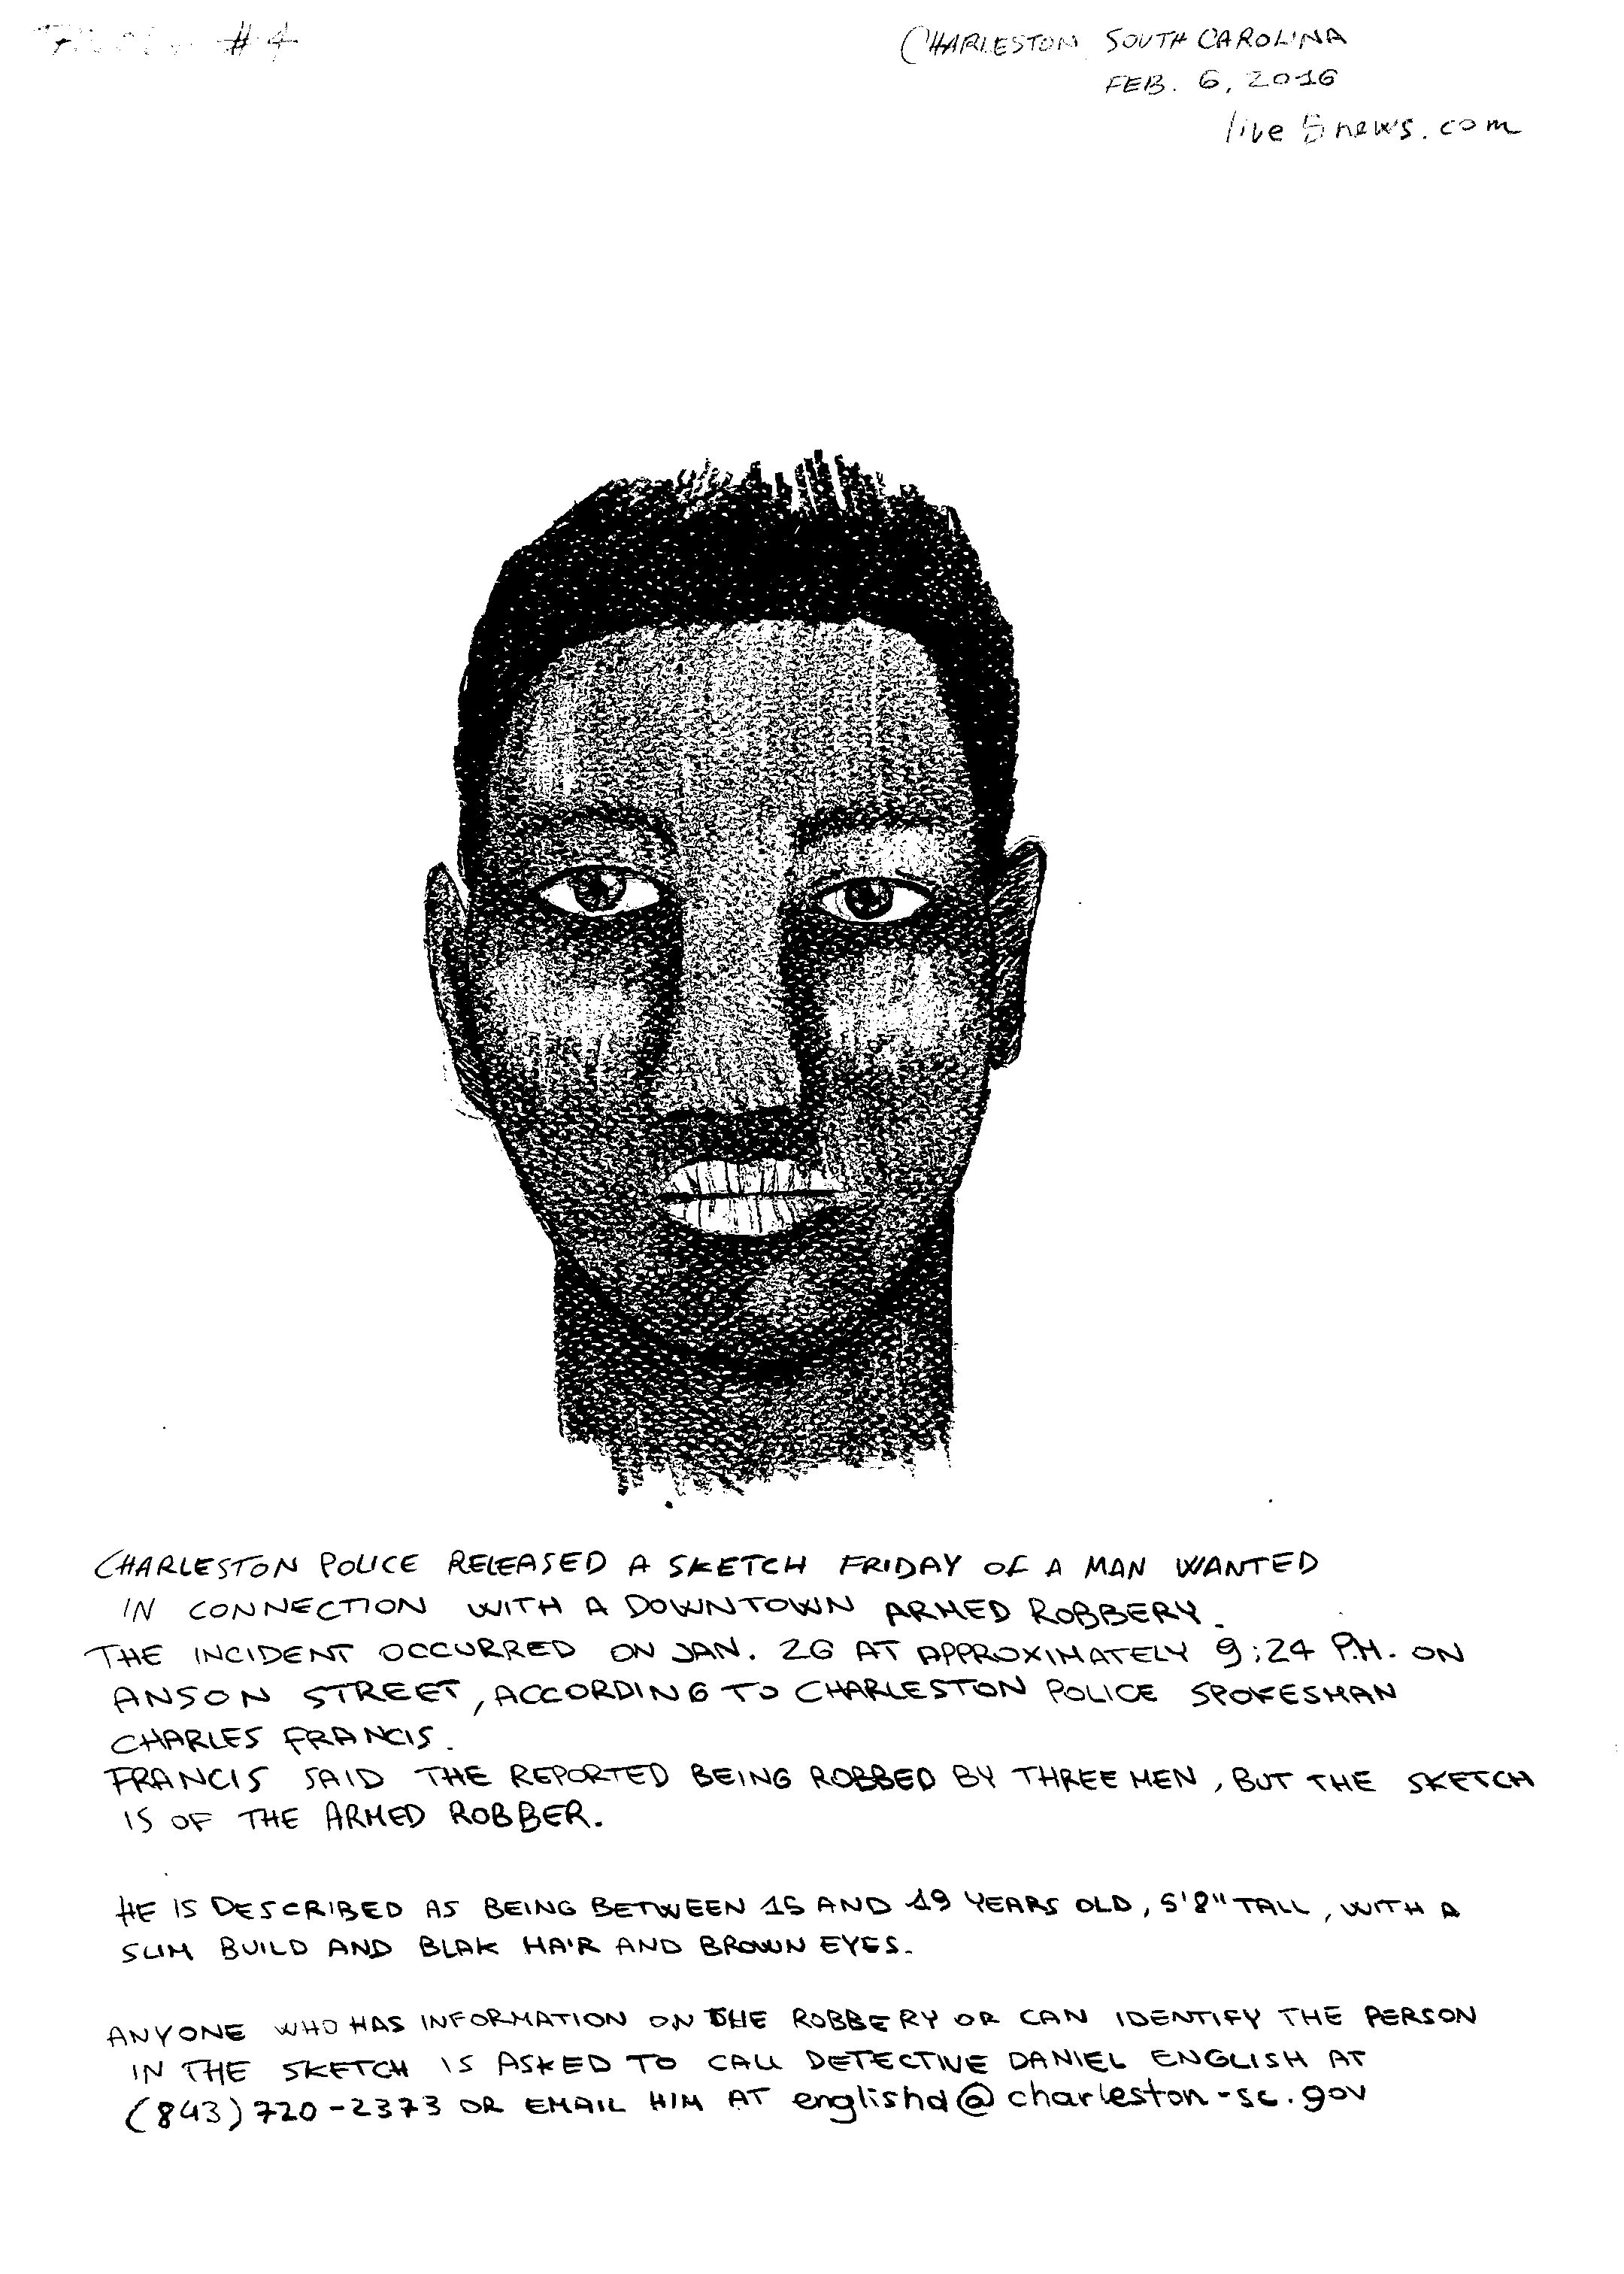 #4
CHARLESTON SOUTH CAROLINA
FEB. 6, 2016
live5news.com
CHARLESTON POLICE RELEASED A SKETCH FRIDAY OF A MAN WANTED
IN CONNECTION WITH A DOWNTOWN ARMED ROBBERY.
THE INCIDENT OCCURRED ON JAN. 26 AT APPROXIMATELY 9:24 P.M. ON
ANSON STREET, ACCORDING TO CHARLESTON POLICE SPOKESMAN
CHARLES FRANCIS.
FRANCIS SAID THE REPORTED BEING ROBBED BY THREE MEN, BUT THE SKETCH
IS OF THE ARMED ROBBER.
HE IS DESCRIBED AS BEING BETWEEN AND 19 YEARS OLD, 5'8" TALL, WITH A
SLIM BUILD AND BLAK HAIR AND BROWN EYES.
ANYONE WHO HAS INFORMATION ON THE ROBBERY OR CAN IDENTIFY THE PERSON
IN THE SKETCH IS ASKED TO CALL DETECTIVE DANIEL ENGLISH AT
(843) 720-2373 OR EMAIL HIM AT englishd@charleston-sc.gov